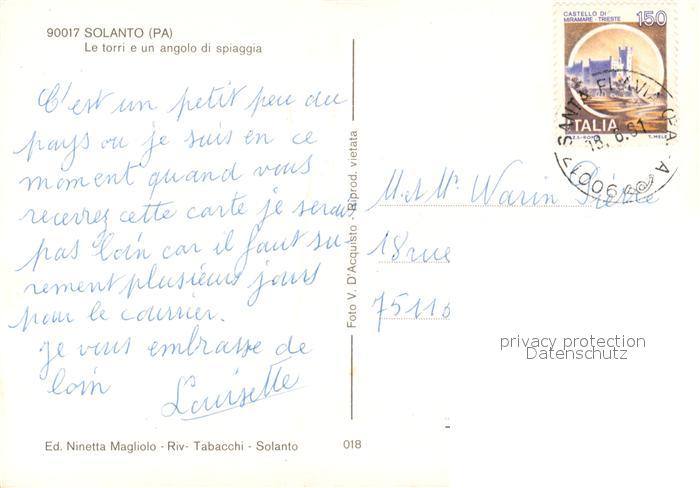 90017 SOLANTO (PA)
Le torri e un angolo di spiaggia
C'est un petit peu du
pays ou je suis en ce
moment quand vous
recevrez cette carte je serai
pas loin car il faut su-
rement plusieurs jours
pour le courrier.
je vous embrasse de
loin
Louisette
Ed. Ninetta Magliolo - Riv- Tabacchi - Solanto
018
Foto V. D'Acquisto - Riprod. vietata
CASTELLO DI
MIRAMARE - TRIESTE
150
ITALIA
T. MELE
SANTA FLAVIA
90017
M. et Me Warin Pierre
18 rue
75116
privacy protection
Datenschutz